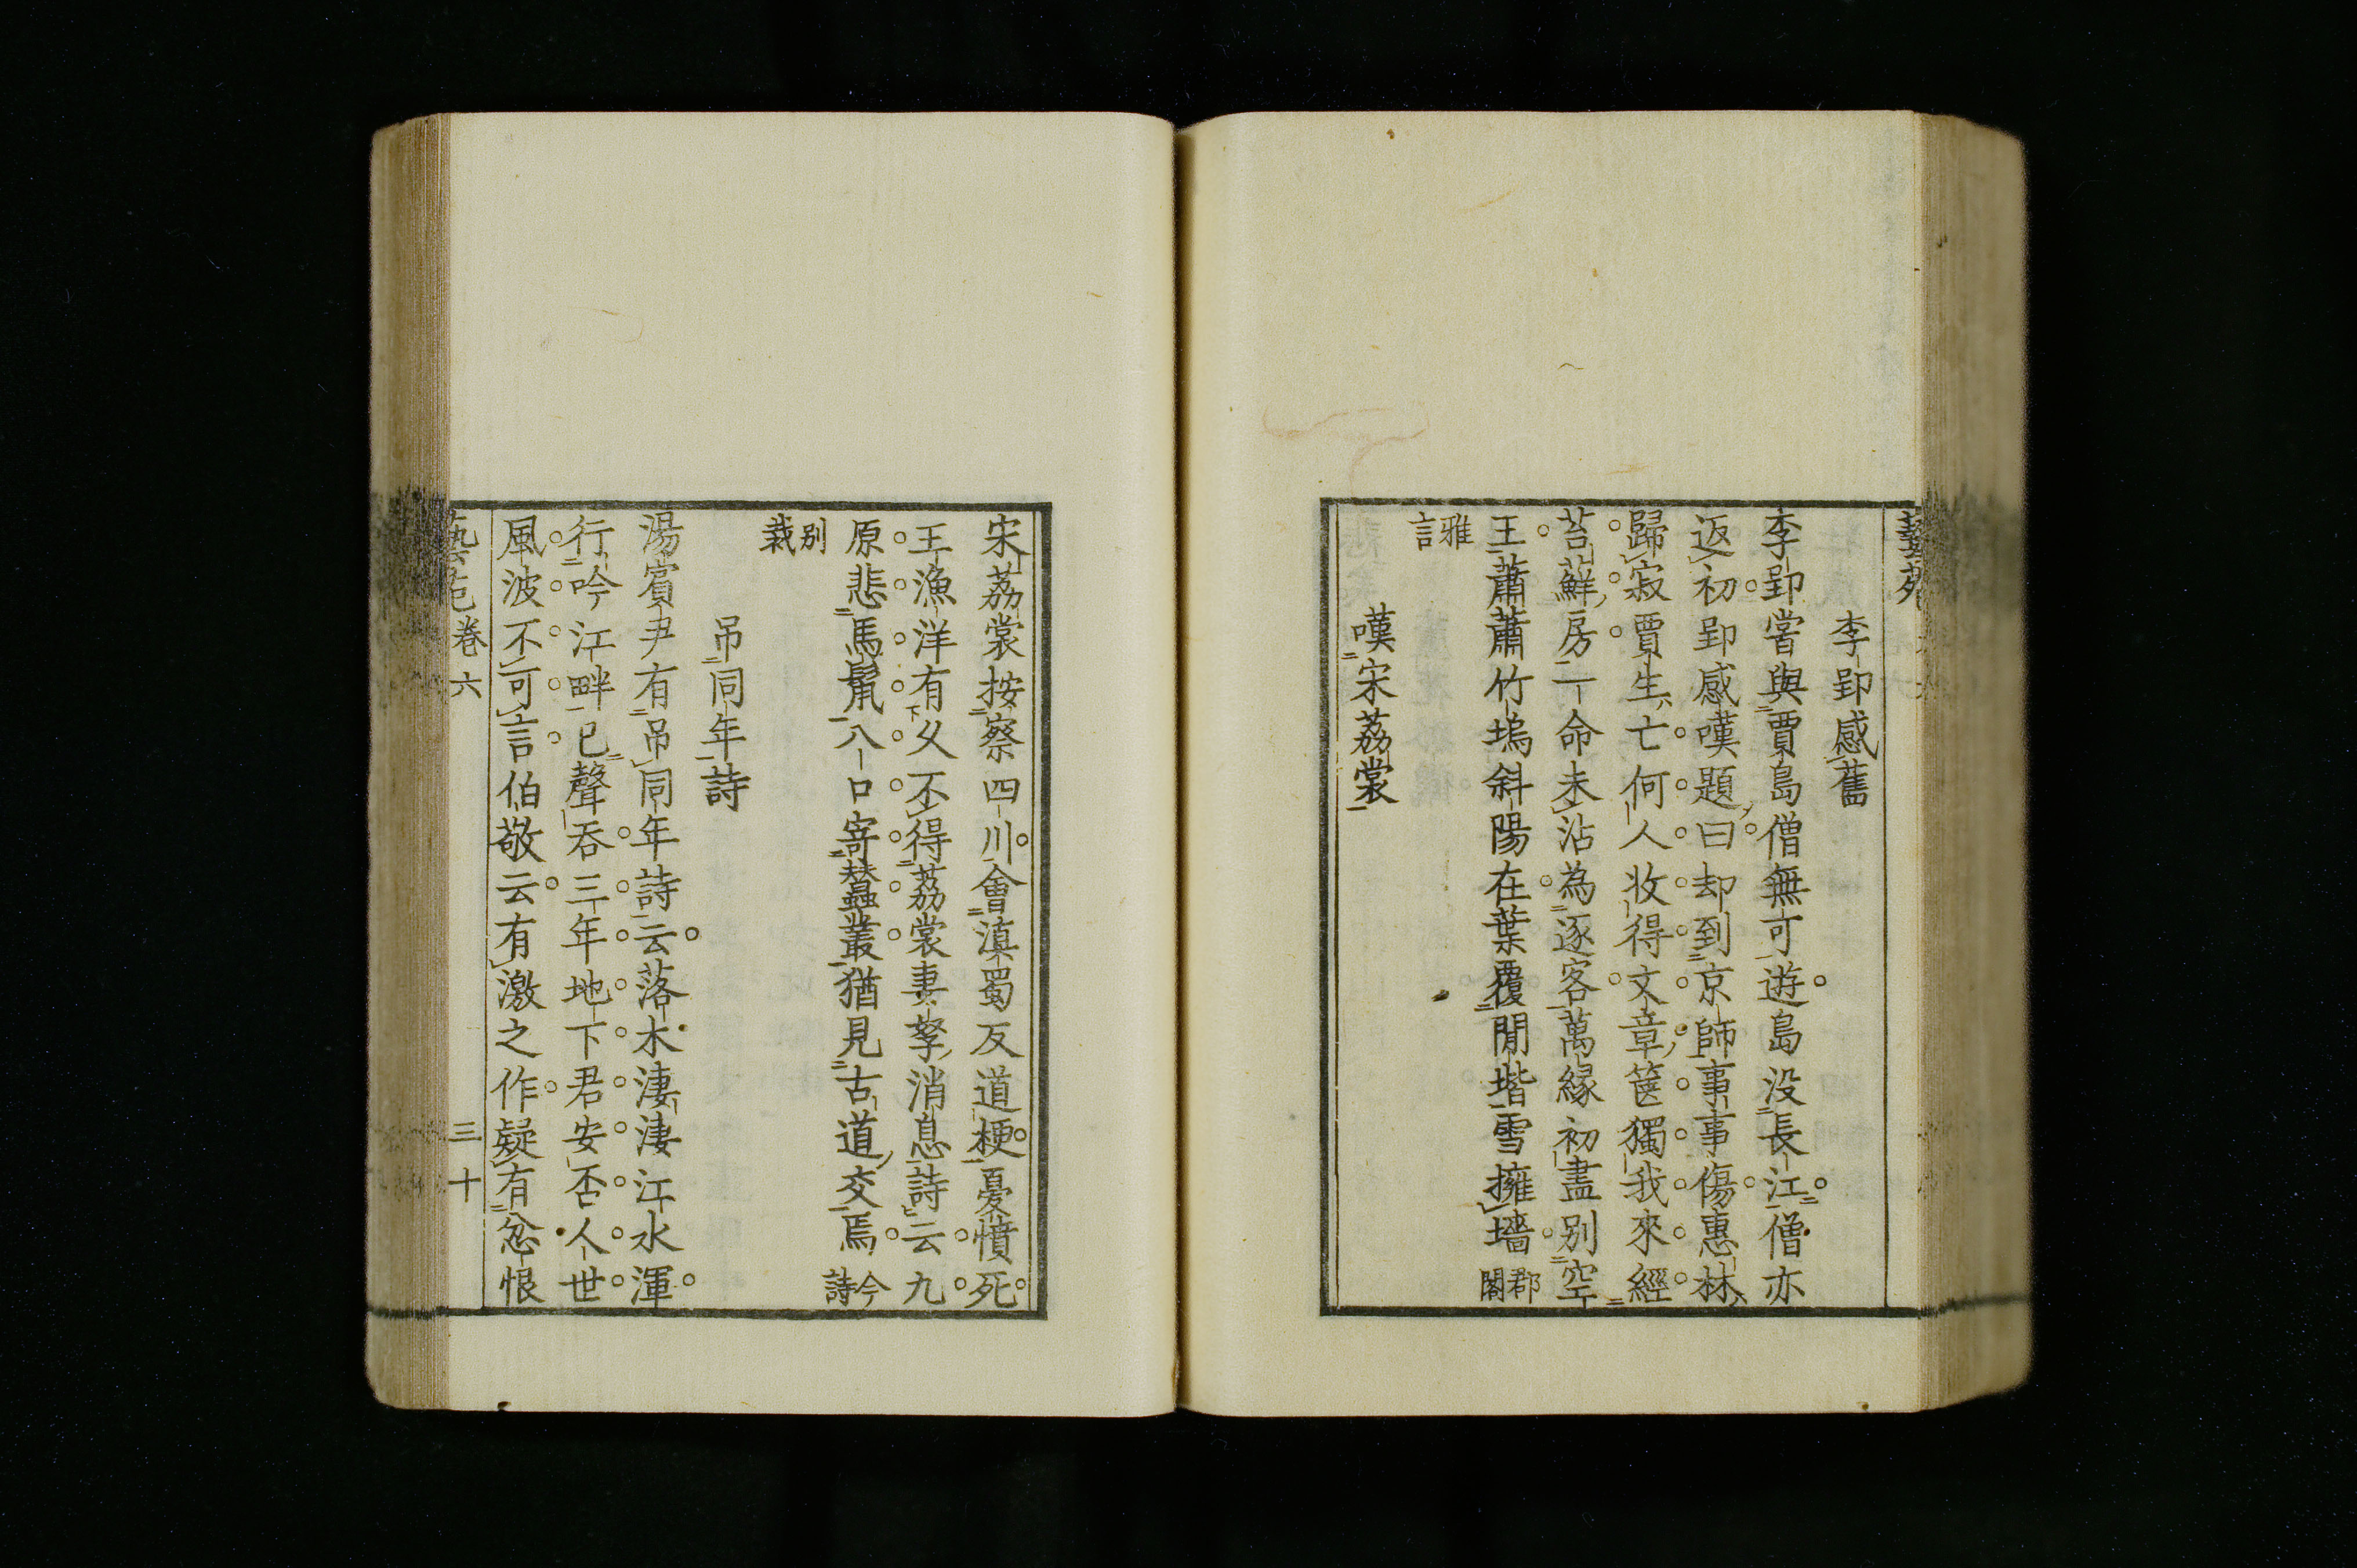 藝苑
李郢感舊
李郢嘗與賈島僧無可遊島没長江僧亦
返初郢感嘆題曰却到京師事事傷惠林
歸寂賈生亡何人收得文章篋獨我來經
苔蘚房一命未沾為逐客萬縁初盡别空
王蕭蕭竹塢斜陽在葉覆閒堦雪擁墻郡閣
雅言
嘆宋荔裳
宋荔裳按察四川會滇蜀反道梗憂憤死
王漁洋有久不得荔裳妻孥消息詩云九
原悲馬鬣八口寄蠶叢猶見古道交焉今詩
别裁
吊同年詩
湯賓尹有吊同年詩云落木淒淒江水渾
行吟江畔已聲吞三年地下君安否人世
風波不可言伯敬云有激之作疑有忿恨
藝苑卷六 三十